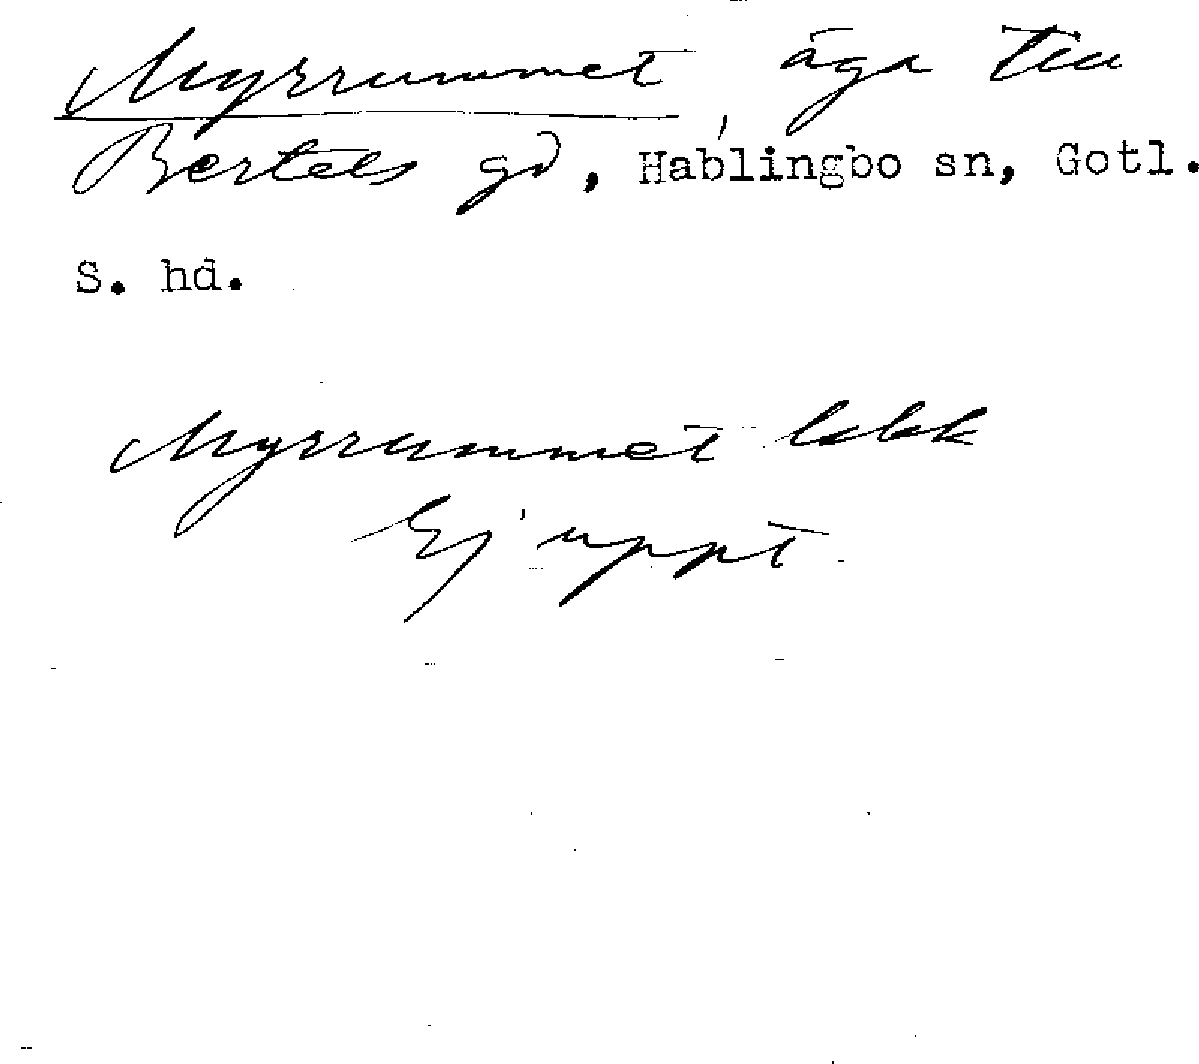 Myrrummet, äga till
Bertels gd, Hablingbo sn, Gotl.
S. hd.
Myrrummet lokk
Ej uppt.